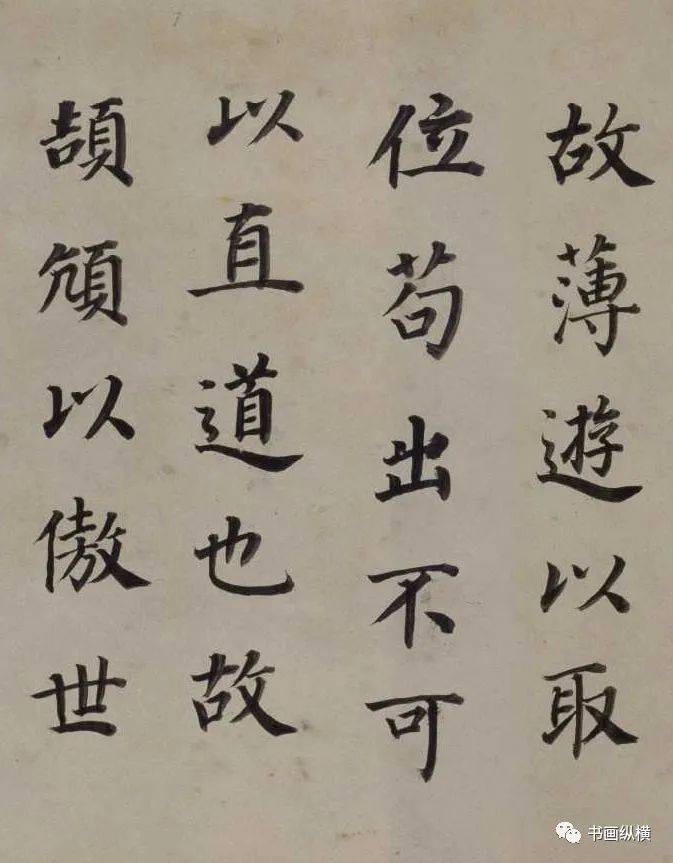 故薄遊以取
位苟出不可
以直道也故
頡頏以傲世
书画纵横